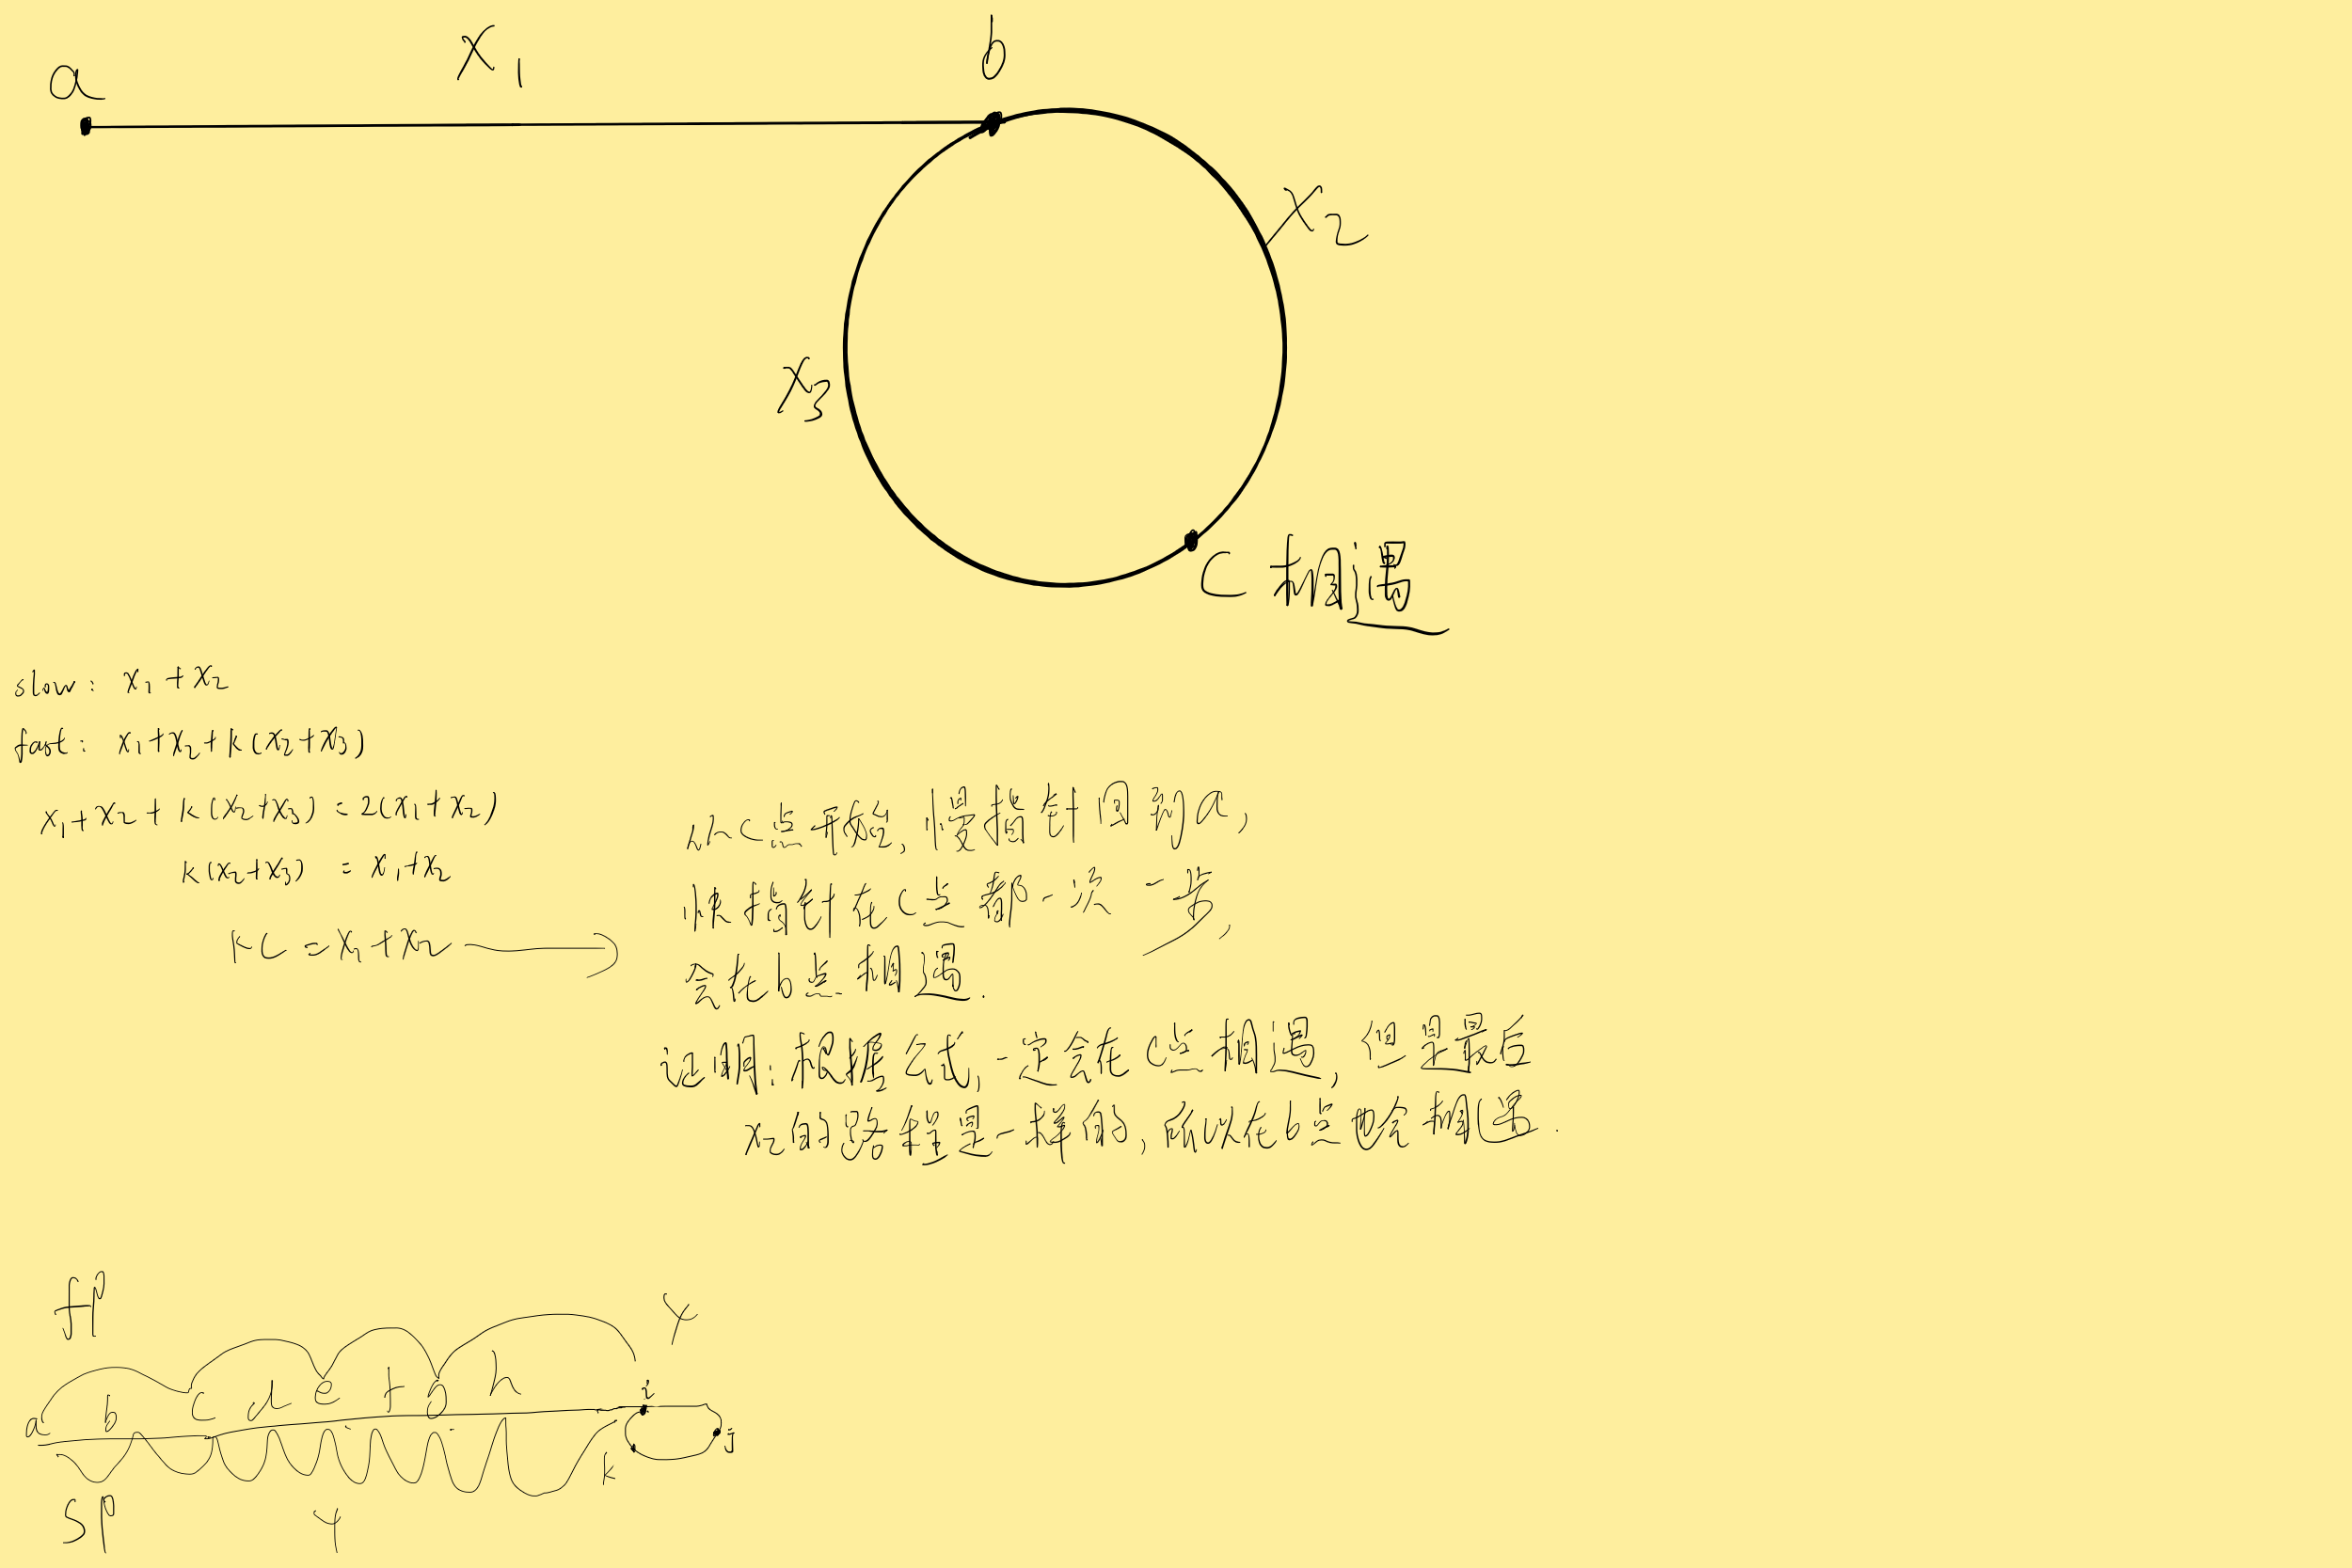 a
x₁
b
x₂
x₃
C 相遇
slow: x₁+x₂
fast: x₁+x₂+k(x₂+x₃)
x₁+x₂+k(x₂+x₃)=2(x₁+x₂)
k(x₂+x₃) = x₁+x₂
kC=x₁+x₂
从C点开始,慢指针回到a,
快指针在C点都一次一步,
会在b点相遇.
证明:根据公式,一定会在C点相遇,但是最后
x₂的路程是一样的,所以在b点也会相遇.
fP
Y
a b c d e f g h i
j
k
SP
Y